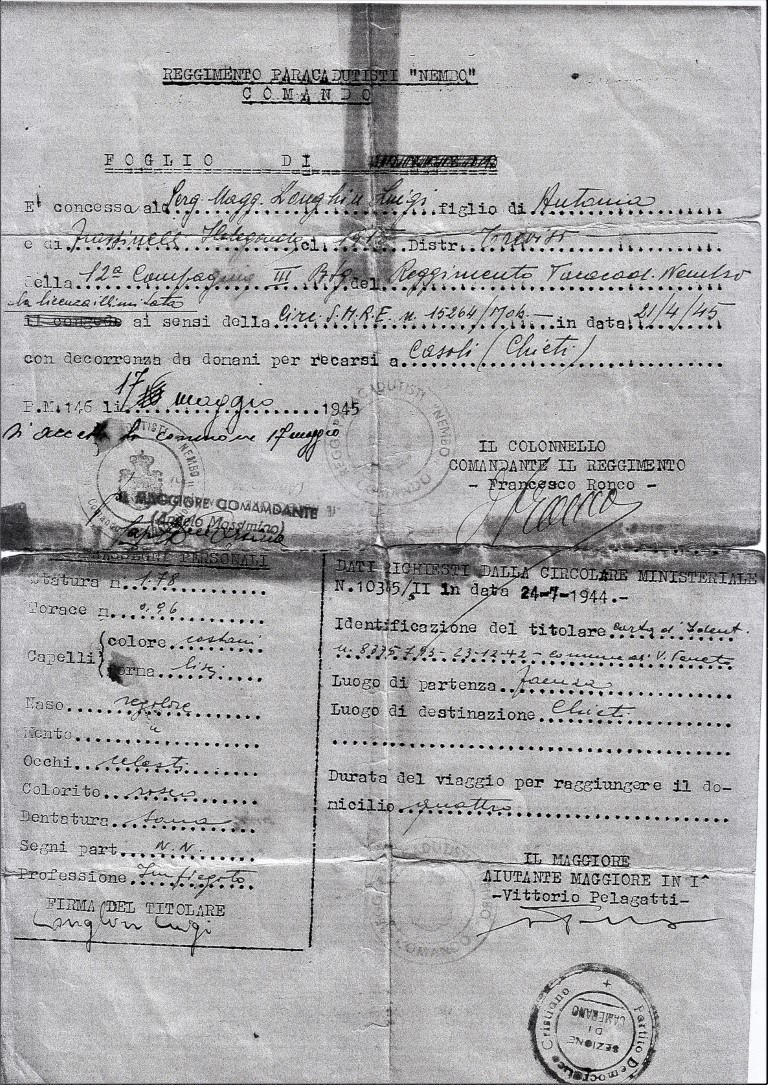 REGGIMENTO PARACADUTISTI "NEMBO"
COMANDO
FOGLIO DI
E' concessa al Serg. Magg. Longhin Luigi figlio di Antonio
e di cl. 191 Distr. Treviso
della 12ª Compagnia III Btg del Reggimento Paracad. Nembo
la licenza illimitata
il congedo ai sensi della Circ. S.M.R.E. n. 15264/Mob. in data 21/4/45
con decorrenza da domani per recarsi a Casoli (Chieti)
P.M. 146 li 17 maggio 1945
Si accetta la 17 maggio
REGG. PARACADUTISTI "NEMBO"
COMANDO
IL COLONNELLO
COMANDANTE IL REGGIMENTO
- Francesco Ronco -
IL MAGGIORE COMANDANTE
(Angelo Massimino)
PERSONALI
Statura n. 1.78
Torace n. 0.96
Capelli (colore castani
(forma lisci
Naso regolare
Mento "
Occhi celesti
Colorito roseo
Dentatura sana
Segni part. N.N.
Professione Impiegato
FIRMA DEL TITOLARE
Longhin Luigi
DATI RICHIESTI DALLA CIRCOLARE MINISTERIALE
N.10395/II in data 24-7-1944.-
Identificazione del titolare carta d'Ident.
n. 8375793 - 23-12-42 - comune di V. Veneto
Luogo di partenza Faenza
Luogo di destinazione Chieti
Durata del viaggio per raggiungere il do-
micilio quattro
IL MAGGIORE
AIUTANTE MAGGIORE IN I^
-Vittorio Pelagatti-
Partito Democratico Cristiano
SEZIONE
DI
CAMERANO